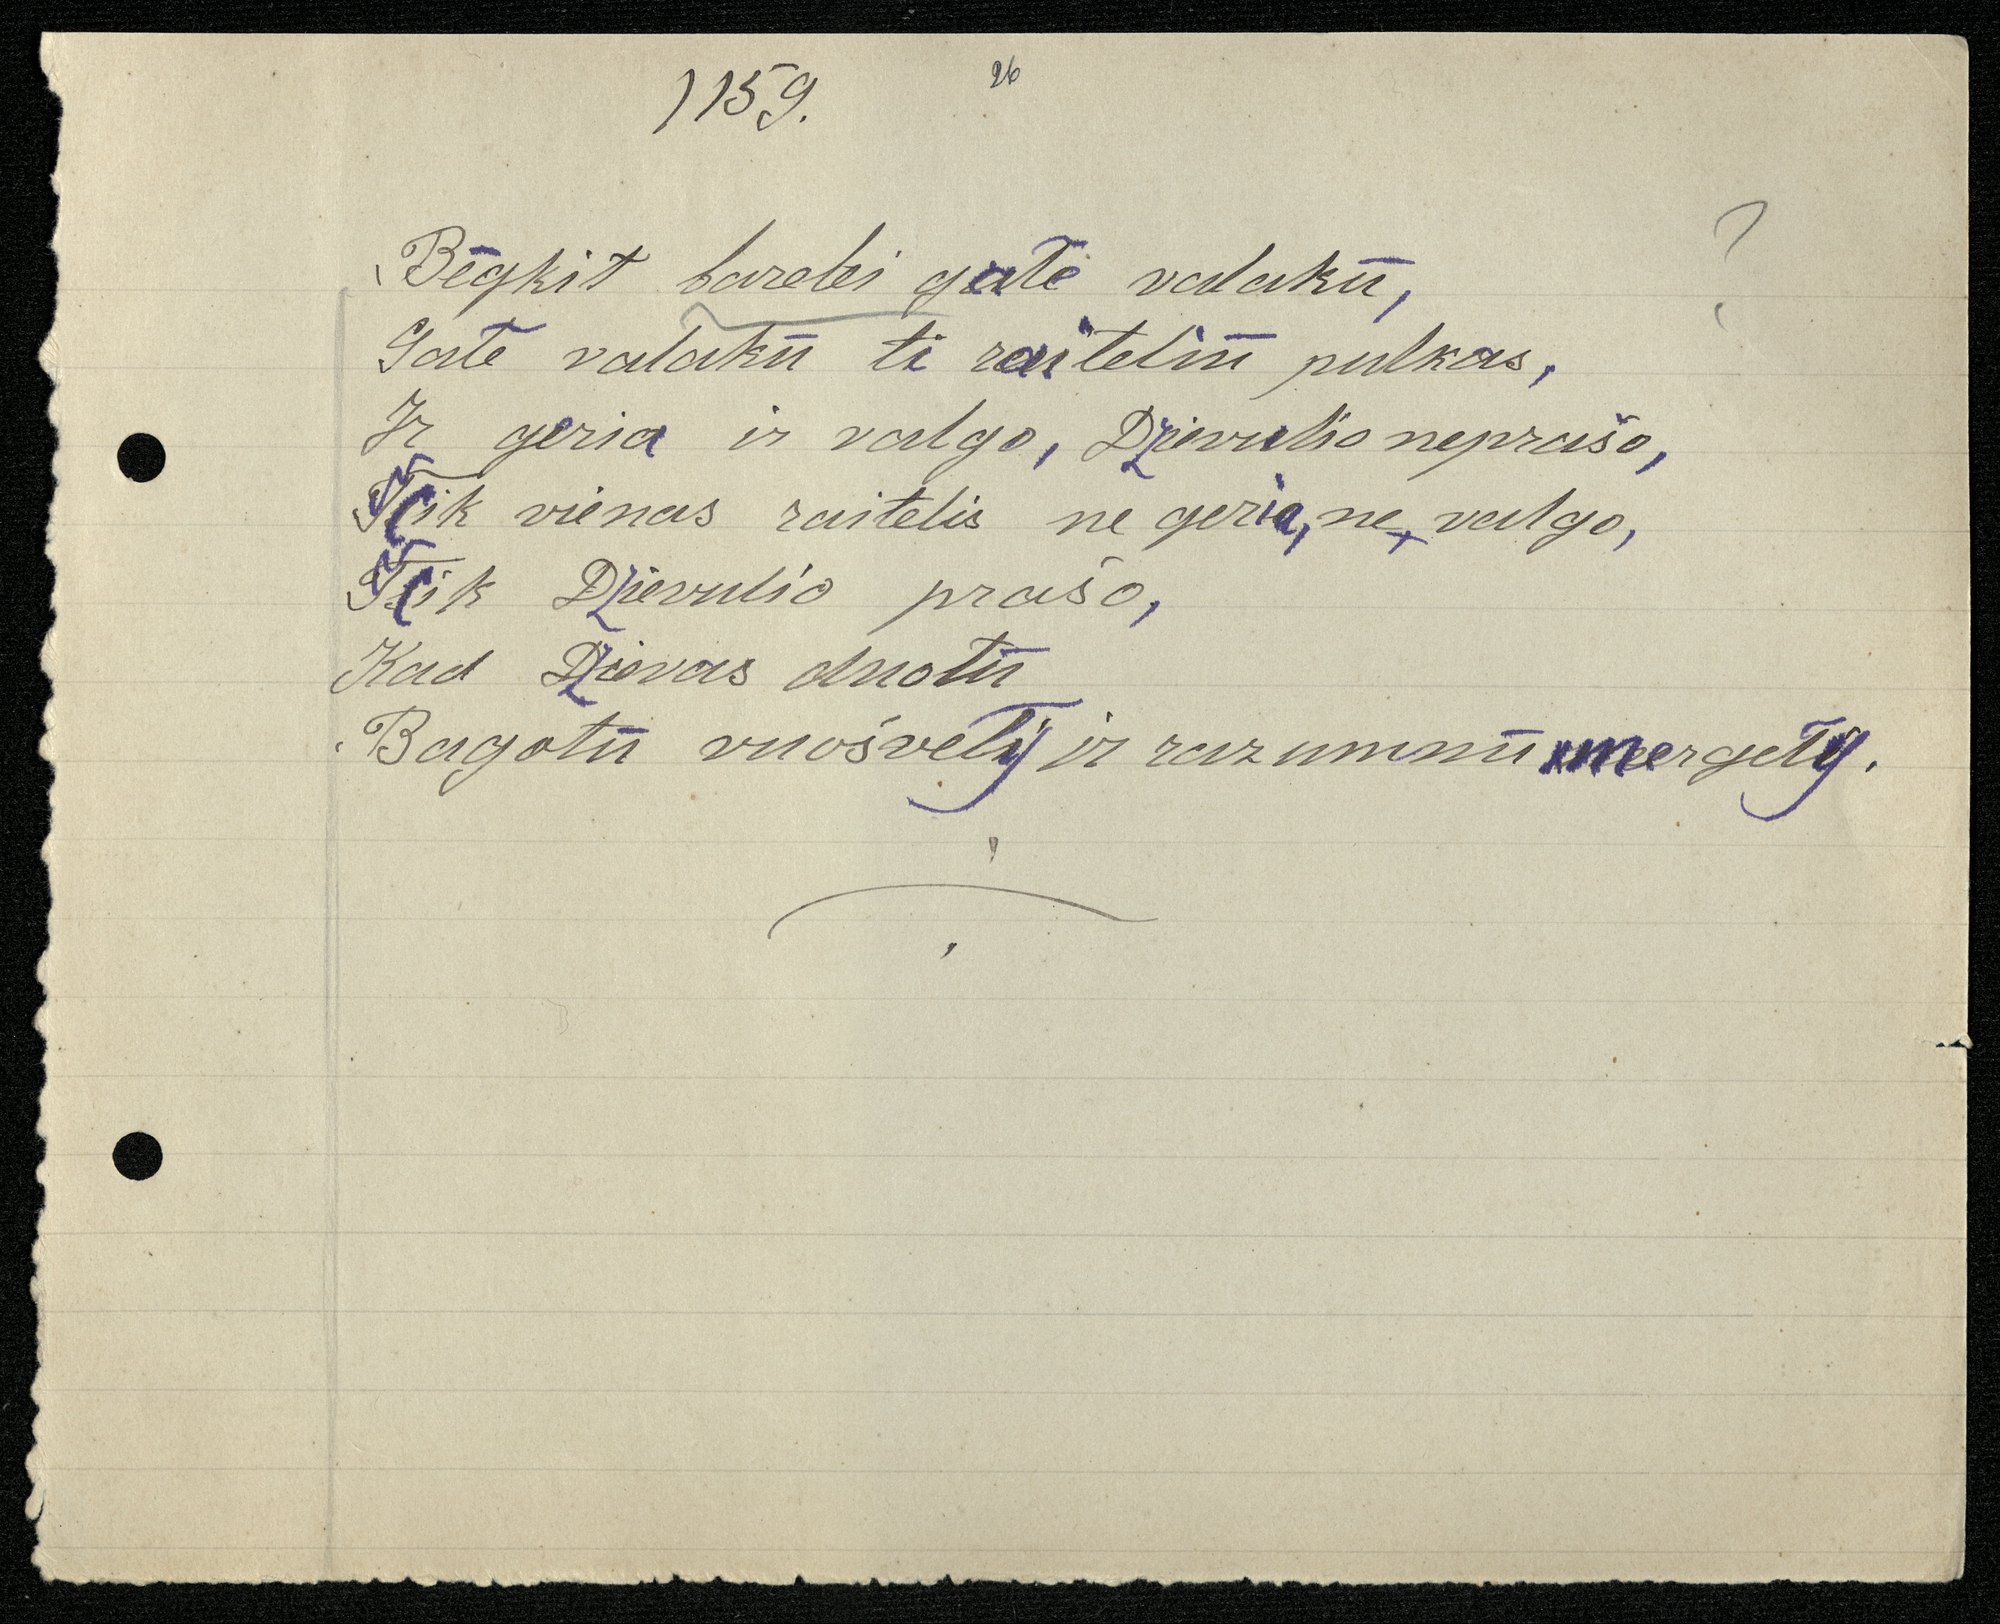 1159. 26
?
Bēgkit barelei gatē valakū,
Gatē valakū ti raiteliū pulkas,
Ir geria ir valgo, Dzievulio neprašo,
Čik vienas raitelis ne geria, ne valgo,
Čik Dzievulio prašo,
Kad Dzievas duotū
Bagotū vuošvelį ir razumnū mergelį.